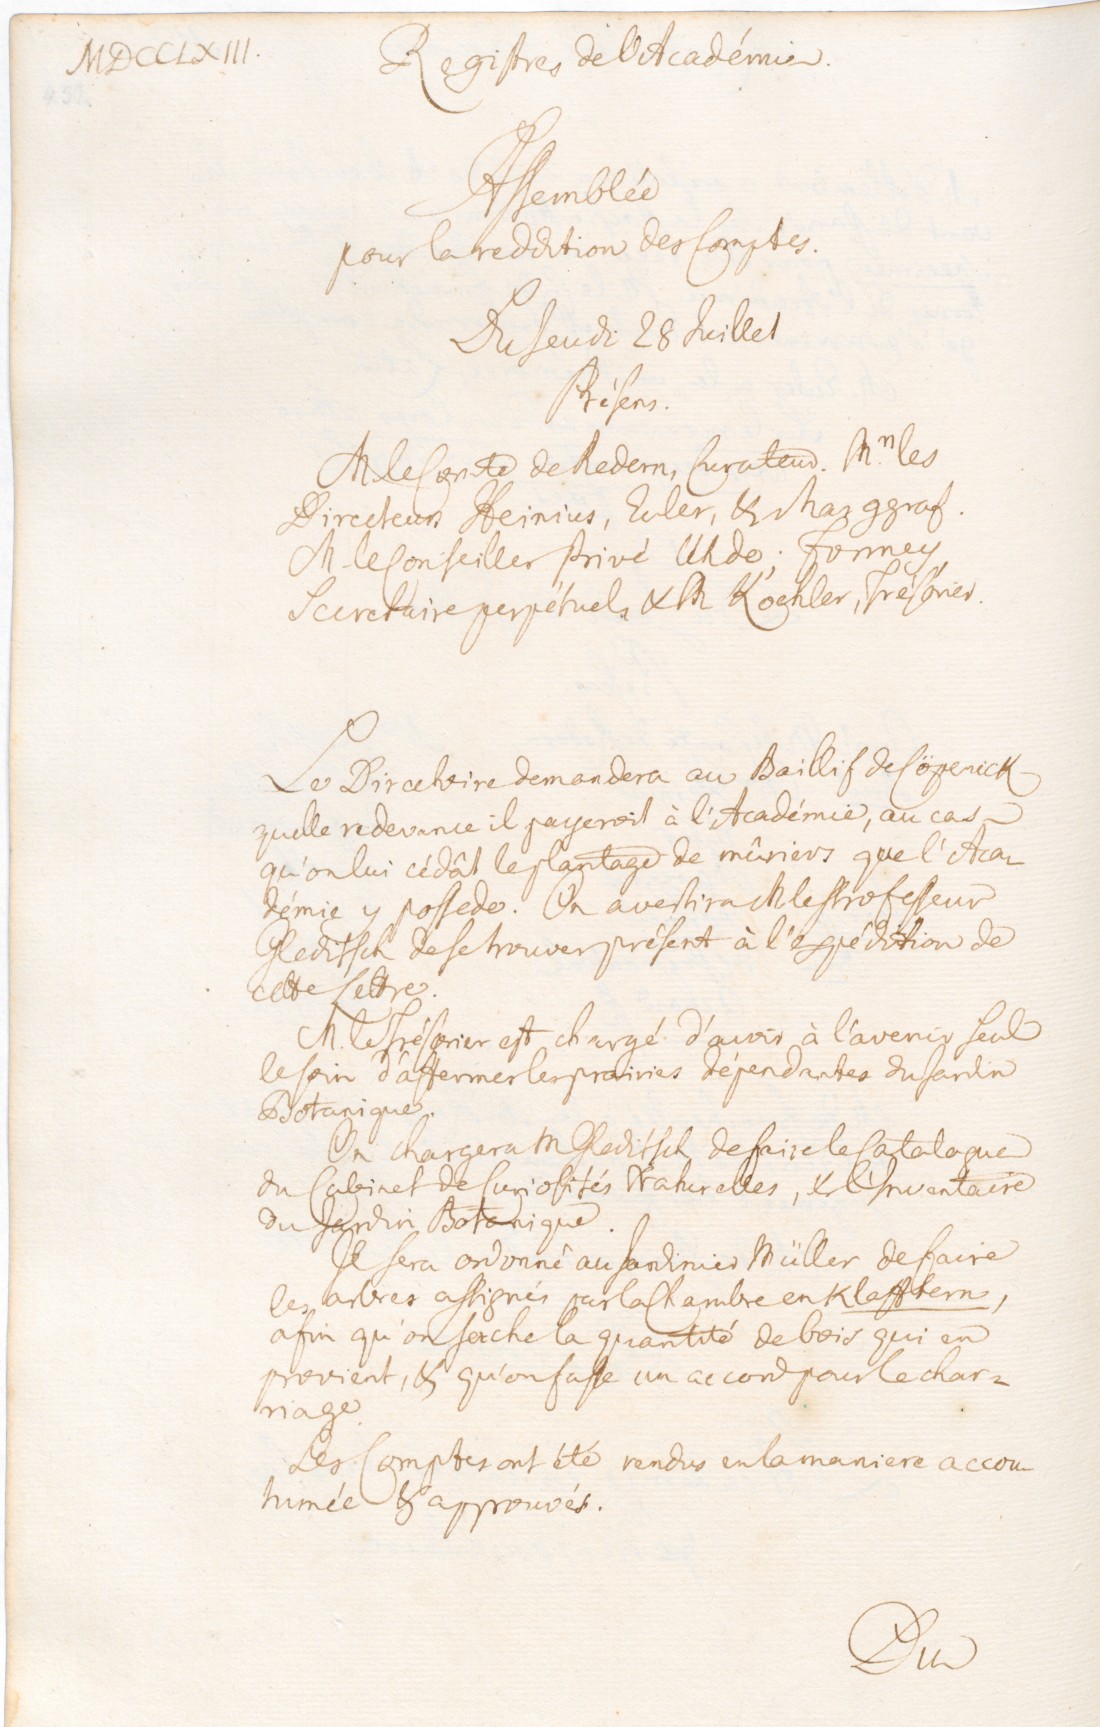 MDCCLXIII.
Registres de l'Académie.
Assemblée
pour la reddition des Comptes.
Du Jeudi 28 Juillet
Présens.
M. le Comte de Redern, Curateur. Mrs les
Directeurs Heinius, Euler, & Marggraf.
M. le Conseiller privé Uhde; Formey
Secretaire perpétuel, & M Koehler, Trésorier.
Le Directoire demandera au Baillif de Cöpenick
quelle redevance il payeroit à l'Académie, au cas
qu'on lui cédât le plantage de mûriers que l'Aca-
démie y possede. On avertira M le Professeur
Gleditsch de se trouver présent à l'expédition de
cette Lettre.
M. le Trésorier est chargé d'avoir à l'avenir seul
le soin d'affermer les prairies dépendantes du Jardin
Botanique.
On chargera M Gleditsch de faire le Catalogue
du Cabinet de Curiosités Naturelles, & l'Inventaire
du Jardin Botanique.
Il sera ordonné au Jardinier Müller de faire
les arbres assignés par la Chambre en Klafftern,
afin qu'on sache la quantité de bois qui en
provient, & qu'on fasse un accord pour le char=
riage.
Les Comptes ont été rendus en la maniere accou-
tumée & approuvés.
Du